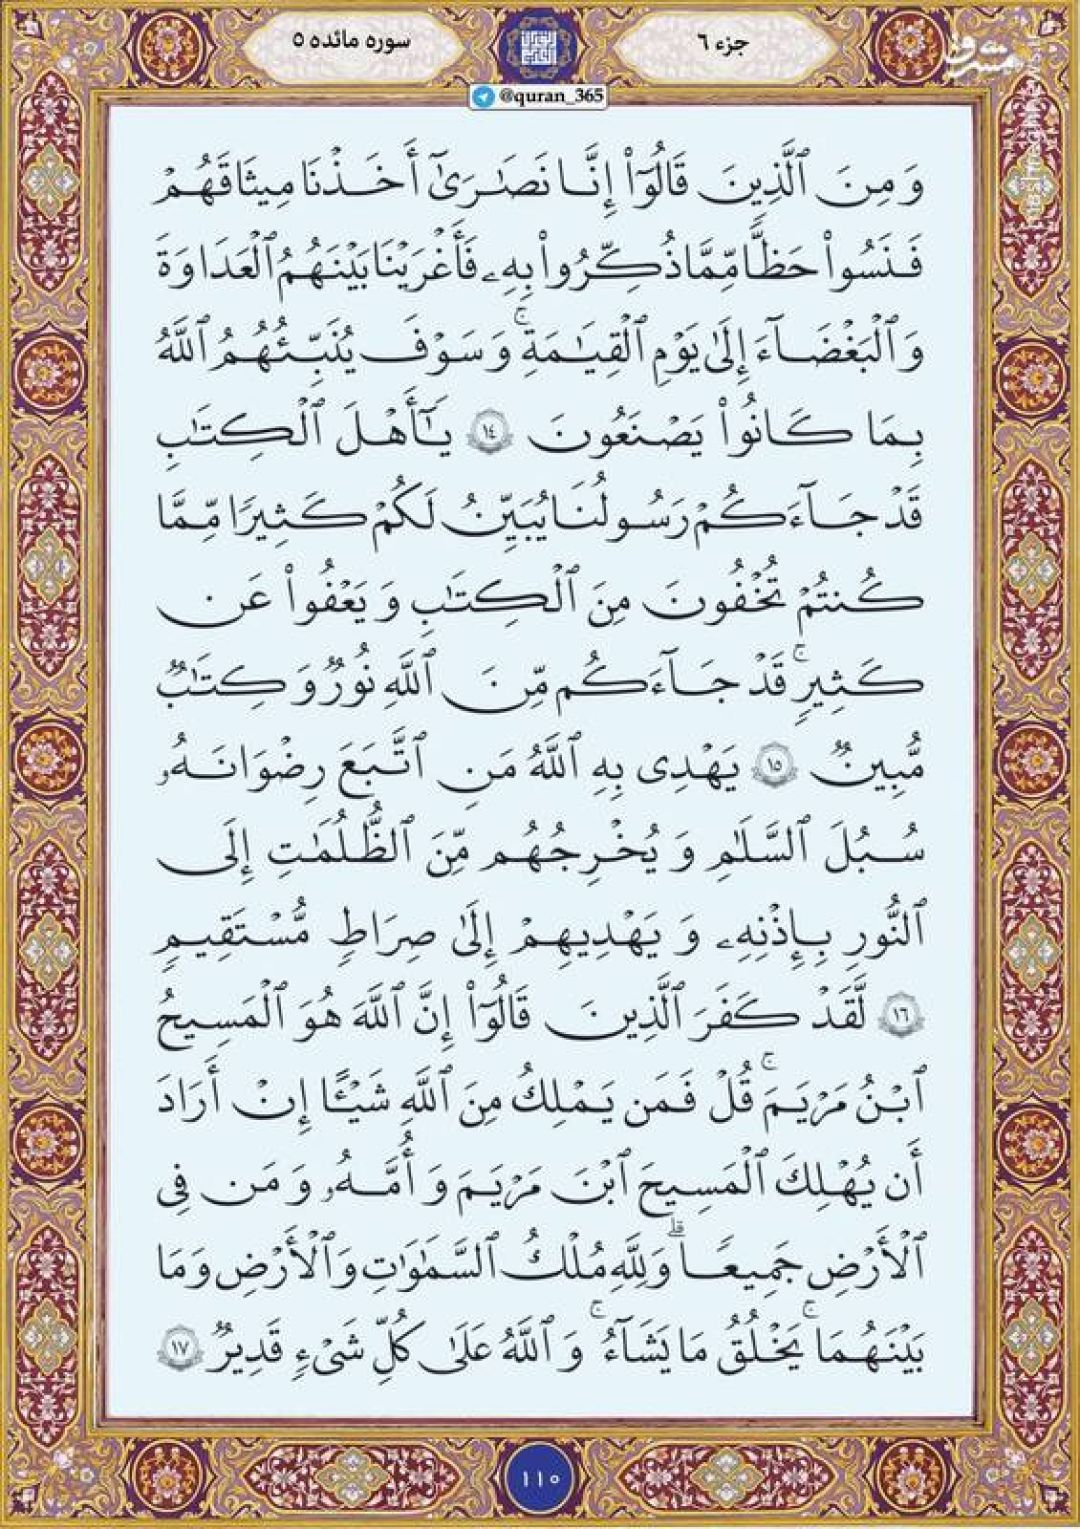 جزء ۶
سوره مائده ۵
@quran_365
وَمِنَ ٱلَّذِينَ قَالُوٓاْ إِنَّا نَصَٰرَىٰٓ أَخَذْنَا مِيثَاقَهُمْ
فَنَسُواْ حَظًّا مِّمَّا ذُكِّرُواْ بِهِۦ فَأَغْرَيْنَا بَيْنَهُمُ ٱلْعَدَاوَةَ
وَٱلْبَغْضَآءَ إِلَىٰ يَوْمِ ٱلْقِيَٰمَةِ ۚ وَسَوْفَ يُنَبِّئُهُمُ ٱللَّهُ
بِمَا كَانُواْ يَصْنَعُونَ ١٤ يَٰٓأَهْلَ ٱلْكِتَٰبِ
قَدْ جَآءَكُمْ رَسُولُنَا يُبَيِّنُ لَكُمْ كَثِيرًا مِّمَّا
كُنتُمْ تُخْفُونَ مِنَ ٱلْكِتَٰبِ وَيَعْفُواْ عَن
كَثِيرٍ ۚ قَدْ جَآءَكُم مِّنَ ٱللَّهِ نُورٌ وَكِتَٰبٌ
مُّبِينٌ ١٥ يَهْدِى بِهِ ٱللَّهُ مَنِ ٱتَّبَعَ رِضْوَانَهُۥ
سُبُلَ ٱلسَّلَٰمِ وَيُخْرِجُهُم مِّنَ ٱلظُّلُمَٰتِ إِلَى
ٱلنُّورِ بِإِذْنِهِۦ وَيَهْدِيهِمْ إِلَىٰ صِرَاطٍ مُّسْتَقِيمٍ
١٦ لَّقَدْ كَفَرَ ٱلَّذِينَ قَالُوٓاْ إِنَّ ٱللَّهَ هُوَ ٱلْمَسِيحُ
ٱبْنُ مَرْيَمَ ۚ قُلْ فَمَن يَمْلِكُ مِنَ ٱللَّهِ شَيْـًٔا إِنْ أَرَادَ
أَن يُهْلِكَ ٱلْمَسِيحَ ٱبْنَ مَرْيَمَ وَأُمَّهُۥ وَمَن فِى
ٱلْأَرْضِ جَمِيعًا ۗ وَلِلَّهِ مُلْكُ ٱلسَّمَٰوَٰتِ وَٱلْأَرْضِ وَمَا
بَيْنَهُمَا ۚ يَخْلُقُ مَا يَشَآءُ ۚ وَٱللَّهُ عَلَىٰ كُلِّ شَىْءٍ قَدِيرٌ ١٧
١١٠